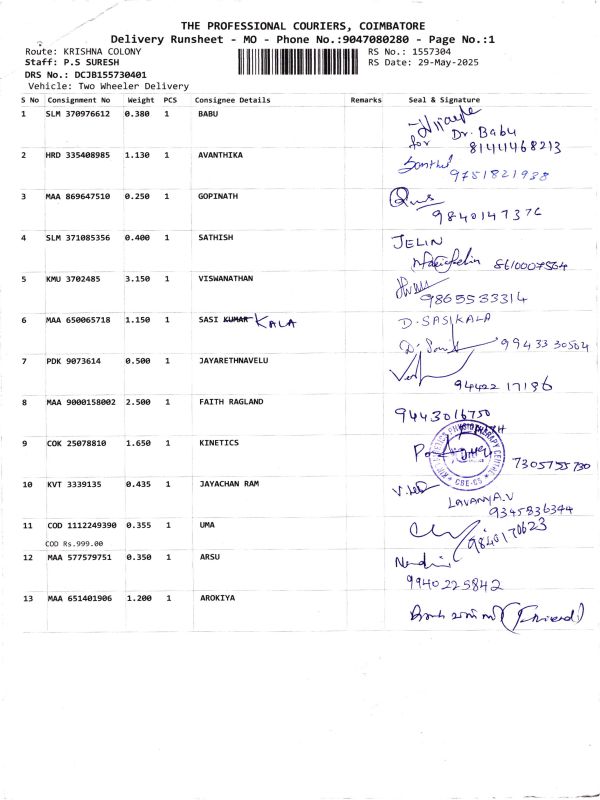 THE PROFESSIONAL COURIERS, COIMBATORE
Delivery Runsheet - MO - Phone No.:9047080280 - Page No.:1
Route: KRISHNA COLONY
RS No.: 1557304
Staff: P.S SURESH
RS Date: 29-May-2025
DRS No.: DCJB155730401
Vehicle: Two Wheeler Delivery
S No Consignment No Weight PCS Consignee Details Remarks Seal & Signature
1 SLM 370976612 0.380 1 BABU
for Dr. Babu
8144468213
2 HRD 335408985 1.130 1 AVANTHIKA
9751821938
3 MAA 869647510 0.250 1 GOPINATH
9840147376
4 SLM 371085356 0.400 1 SATHISH JELIN
8610007564
5 KMU 3702485 3.150 1 VISWANATHAN
9865533314
6 MAA 650065718 1.150 1 SASI KUMAR KALA D. SASIKALA
9943330504
7 PDK 9073614 0.500 1 JAYARETHNAVELU
94422 17186
8 MAA 9000158002 2.500 1 FAITH RAGLAND
9443016750
9 COK 25078810 1.650 1 KINETICS
PHYSIOTHERAPY CENTRE
CBE-
7305755730
10 KVT 3339135 0.435 1 JAYACHAN RAM
LAVANYA.V
9345836344
11 COD 1112249390 0.355 1 UMA
9840170623
COD Rs.999.00
12 MAA 577579751 0.350 1 ARSU
9940225842
13 MAA 651401906 1.200 1 AROKIYA
(Friend)